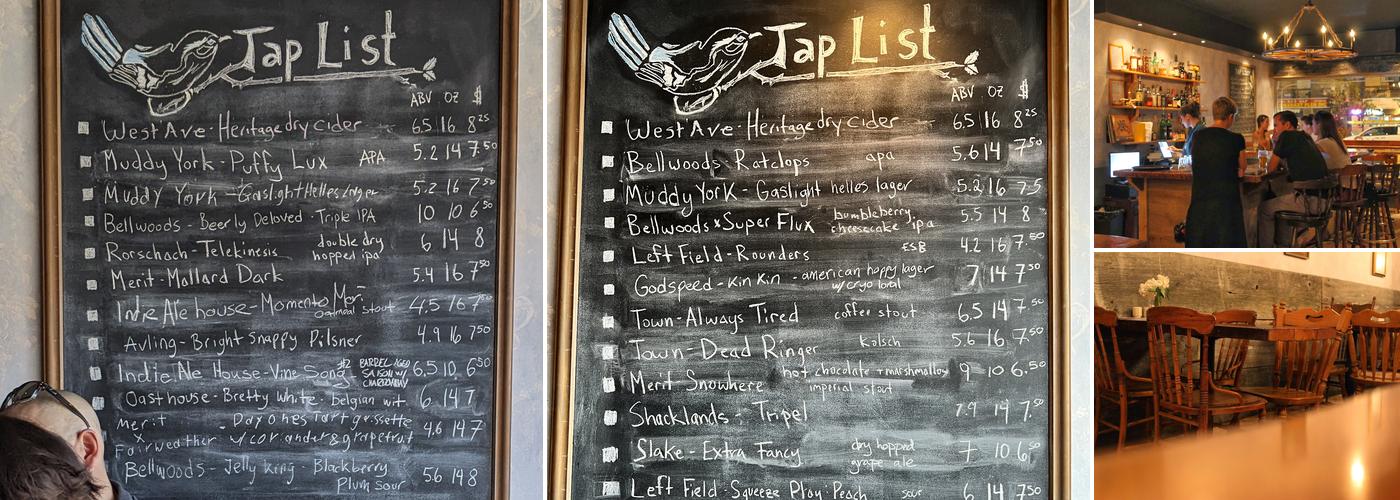 Tap List
ABV OZ $
West Ave - Heritage dry cider 6.5 16 8 25
Muddy York - Puffy Lux APA 5.2 14 7.50
Muddy York - Gaslight Helles Lager 5.2 16 7 50
Bellwoods - Beerly Beloved - Triple IPA 10 10 6 50
Rorschach - Telekinesis double dry hopped ipa 6 14 8
Merit - Mallard Dark 5.4 16 7 50
Indie Ale house - Momento Mori oatmeal stout 4.5 16 7 50
Avling - Bright Snappy Pilsner 4.9 16 7 50
Indie Ale House - Vine Song #2 BARREL AGED SAISON W/ CHARDONNAY 6.5 10 6 50
Oast house - Bretty White - Belgian wit 6 14 7
Merit x Fairweather - Day Ohes Tart grisette w/ coriander & grapefruit 4.6 14 7
Bellwoods - Jelly King - Blackberry Plum sour 5.6 14 8
Tap List
ABV OZ $
West Ave - Heritage dry cider 6.5 16 8 25
Bellwoods - Ratclops apa 5.6 14 7 50
Muddy York - Gaslight helles lager 5.2 16 7.5
Bellwoods x Super Flux bumbleberry cheesecake ipa 5.5 14 8
Left Field - Rounders ESB 4.2 16 7.50
Godspeed - Kin Kin - american hoppy lager w/ cryo loral 7 14 7 50
Town - Always Tired coffee stout 6.5 14 7.50
Town - Dead Ringer Kolsch 5.6 16 7.50
Merit - Snowhere hot chocolate + marshmallow imperial stout 9 10 6.50
Shacklands - Tripel 7.9 14 7.50
Slake - Extra Fancy dry hopped grape ale 7 10 6 50
Left Field - Squeeze Play - Peach sour 6 14 7 50